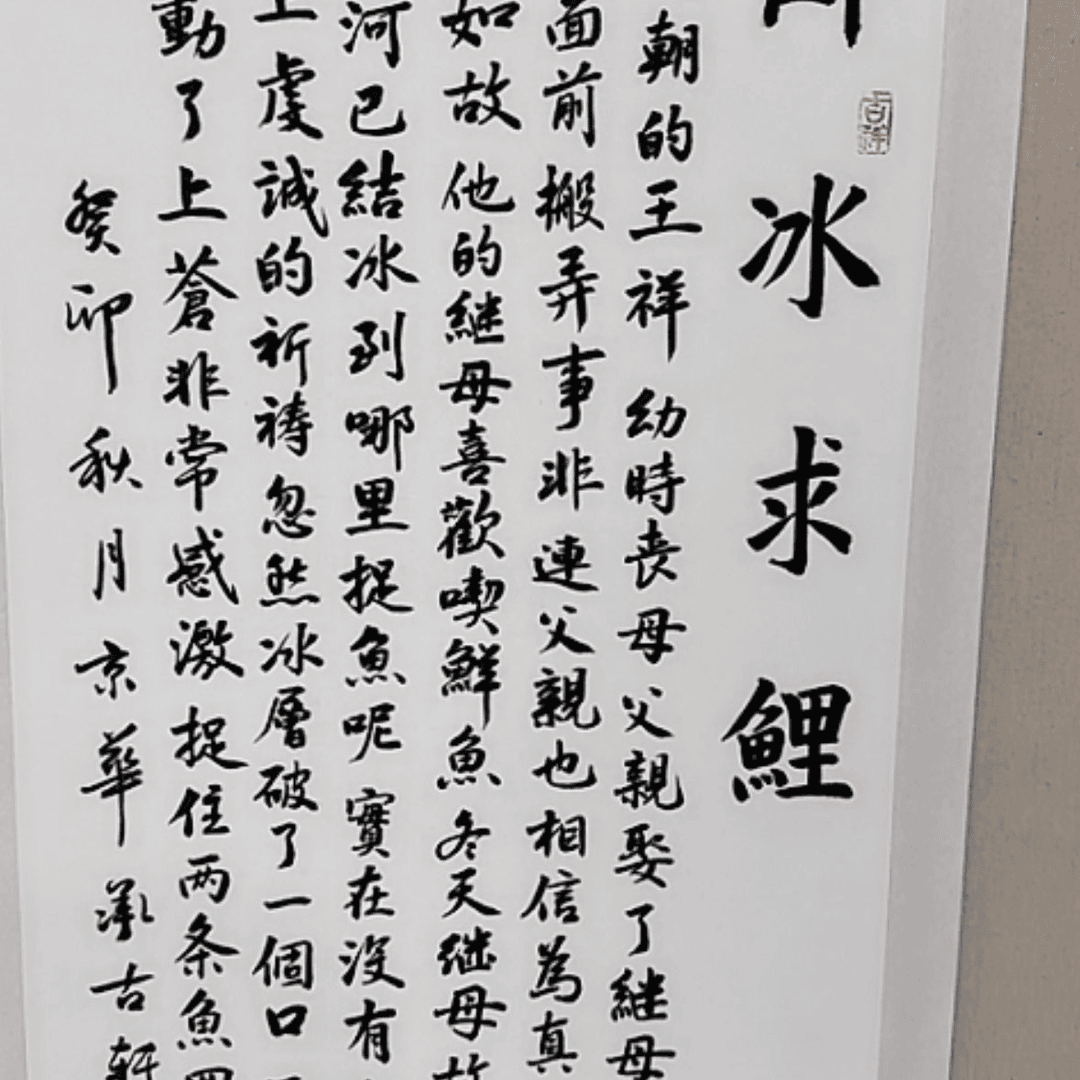 冰求鯉
吉祥
朝的王祥幼時丧母父親娶了継母
面前搬弄事非連父親也相信為真
如故他的継母喜歡喫鮮魚冬天継母
河已結冰到哪里捉魚呢實在沒有
上虔誠的祈祷忽然冰層破了一個口
動了上蒼非常感激捉住两条魚
癸卯秋月京華承古軒